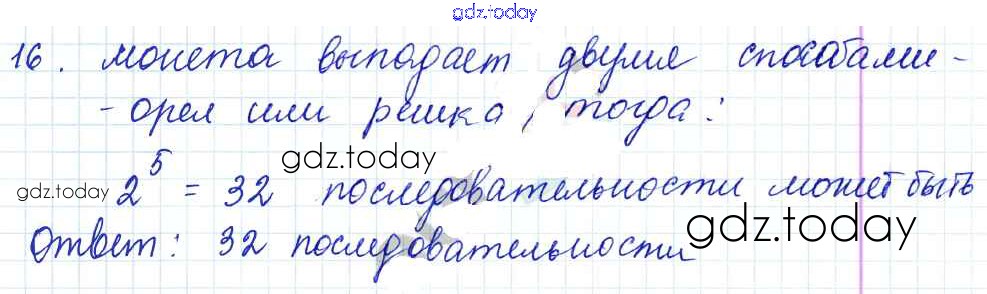 gdz.today
16. монета выпадает двумя способами -
- орел или решка, тогда:
gdz.today
gdz.today 2^5 = 32 последовательности может быть
gdz.today
Ответ: 32 последовательности